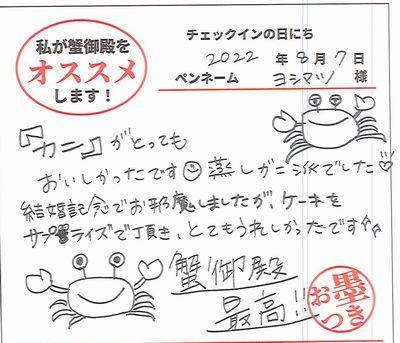 私が蟹御殿を
オススメ
します！
チェックインの日にち
2022年8月7日
ペンネーム ヨシマツ 様
『カニ』がとっても
おいしかったです 蒸しがニ でした♡
結婚記念でお邪魔しましたが、ケーキを
サプライズで頂き、とてもうれしかったです
蟹御殿
最高!!
お墨つき